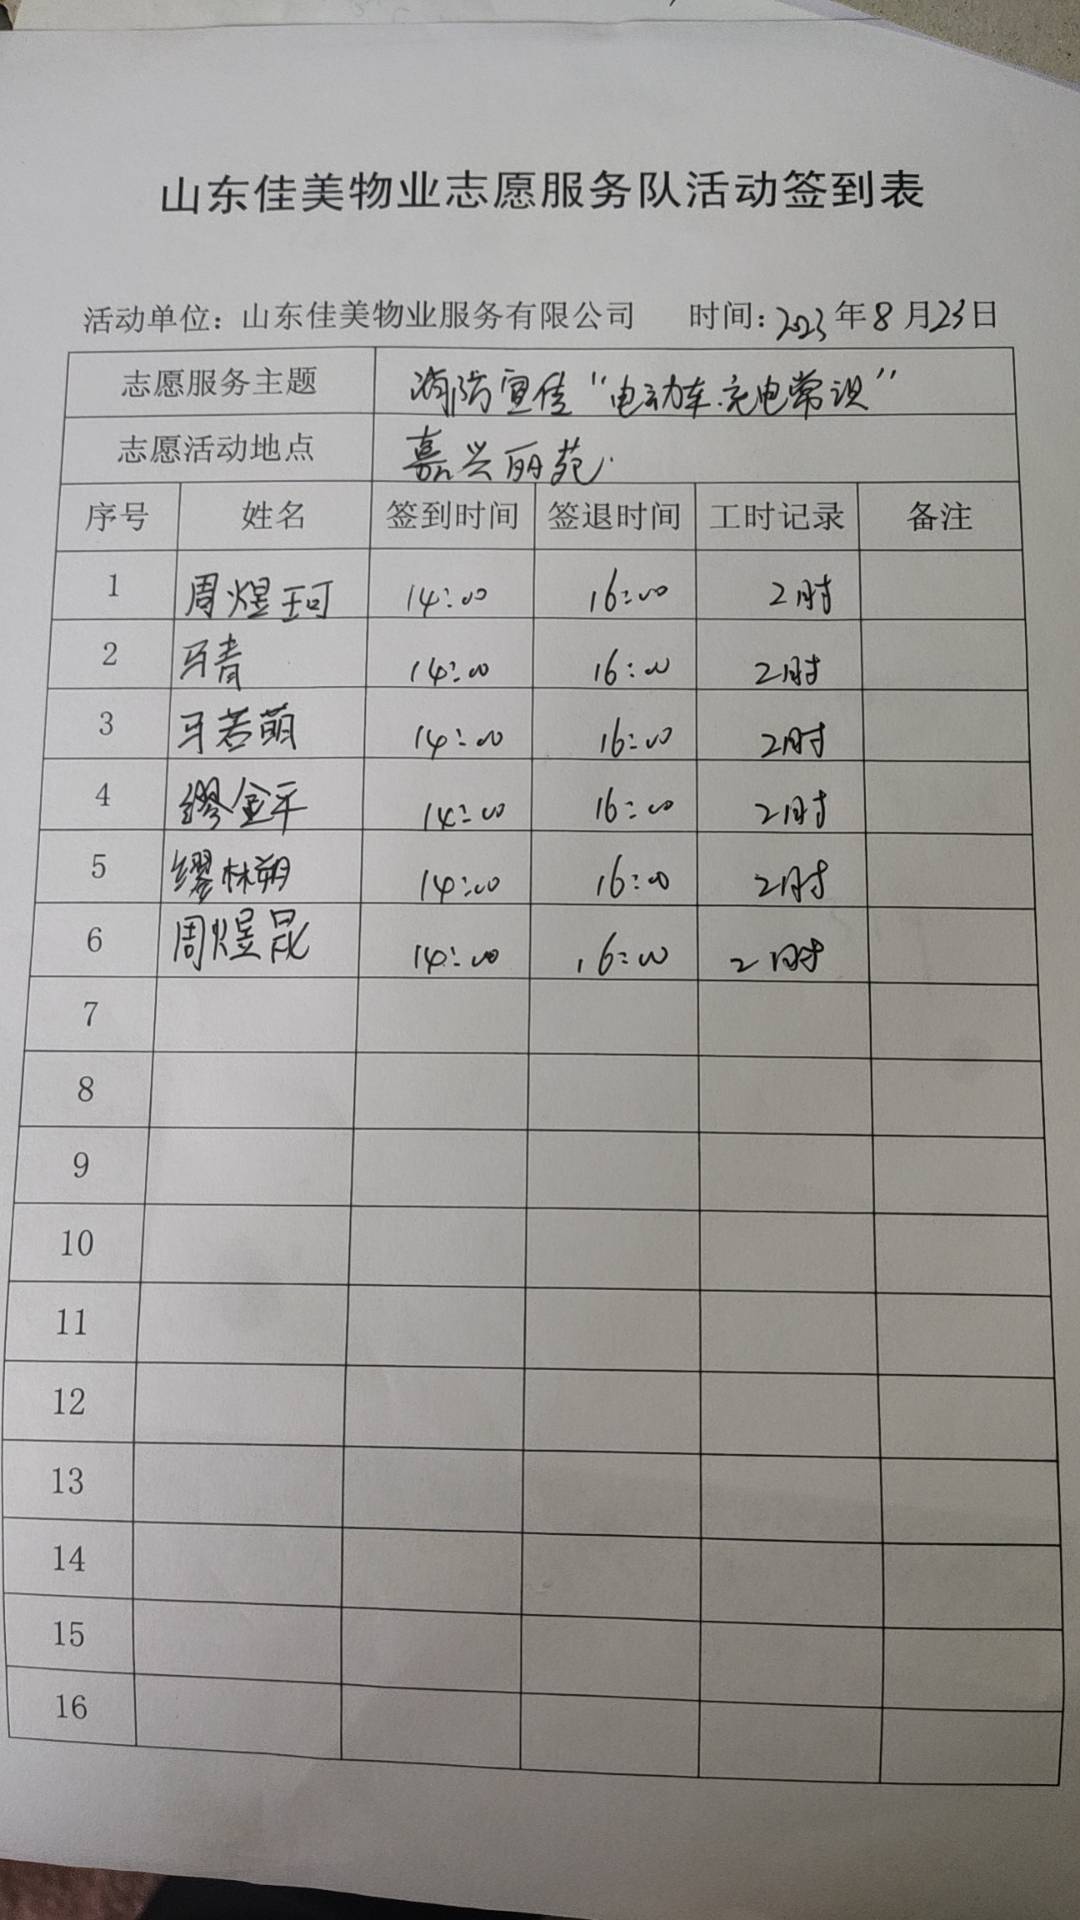 山东佳美物业志愿服务队活动签到表
活动单位：山东佳美物业服务有限公司 时间：2023年8月23日
志愿服务主题 消防宣传“电动车充电常识”
志愿活动地点 嘉兴丽苑
序号 姓名 签到时间 签退时间 工时记录 备注
1 周煜珂 14:00 16:00 2时
2 马青 14:00 16:00 2时
3 马若萌 14:00 16:00 2时
4 缪金平 14:00 16:00 2时
5 缪林朔 14:00 16:00 2时
6 周煜昆 14:00 16:00 2时
7
8
9
10
11
12
13
14
15
16